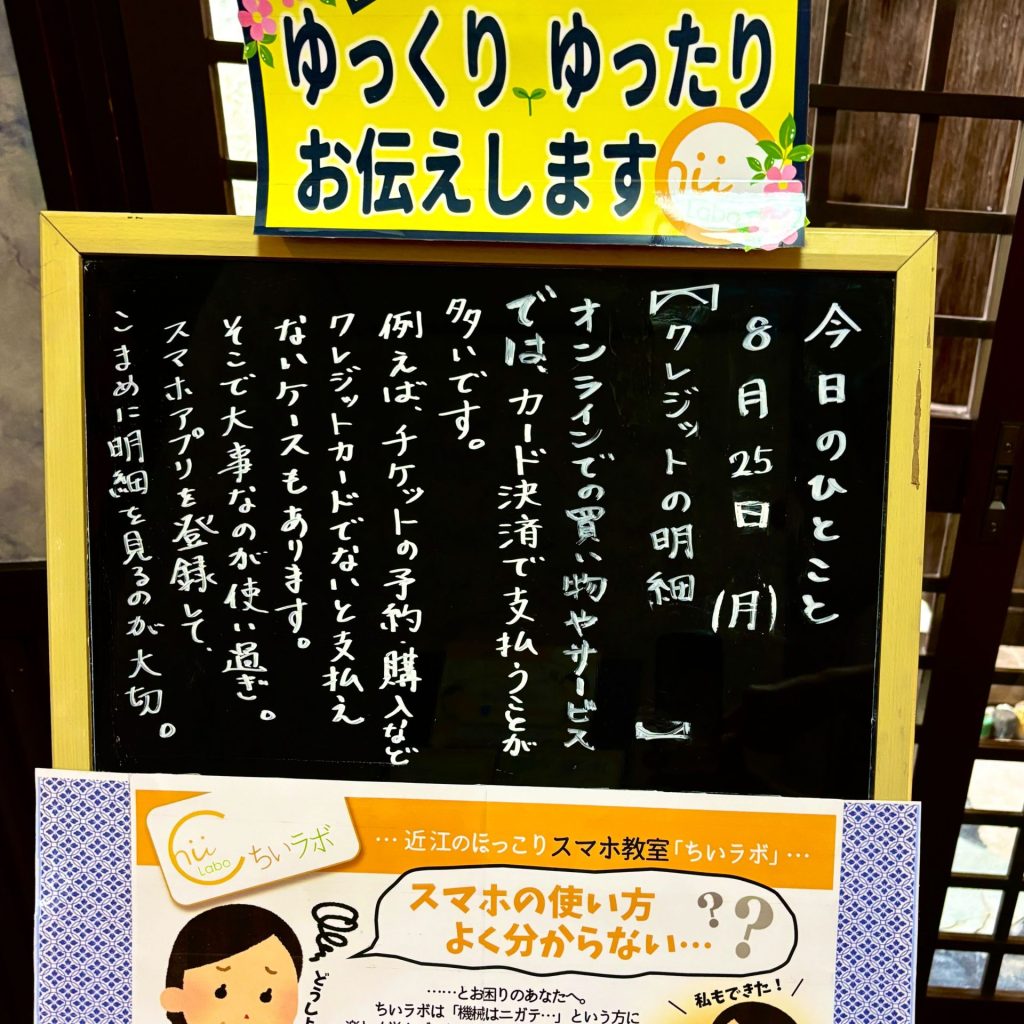 ゆっくり ゆったり
お伝えします
Chii
Labo
今日のひとこと
8月25日(月)
【クレジットの明細】
オンラインでの買い物やサービス
では、カード決済で支払うことが
多いです。
例えば、チケットの予約・購入など
クレジットカードでないと支払え
ないケースもあります。
そこで大事なのが使い過ぎ。
スマホアプリを登録して、
こまめに明細を見るのが大切。
Chii
Labo
ちいラボ
…近江のほっこりスマホ教室「ちいラボ」…
スマホの使い方
よく分からない…
??
どうしよ
……とお困りのあなたへ。
ちいラボは「機械はニガテ…」という方に
私もできた!